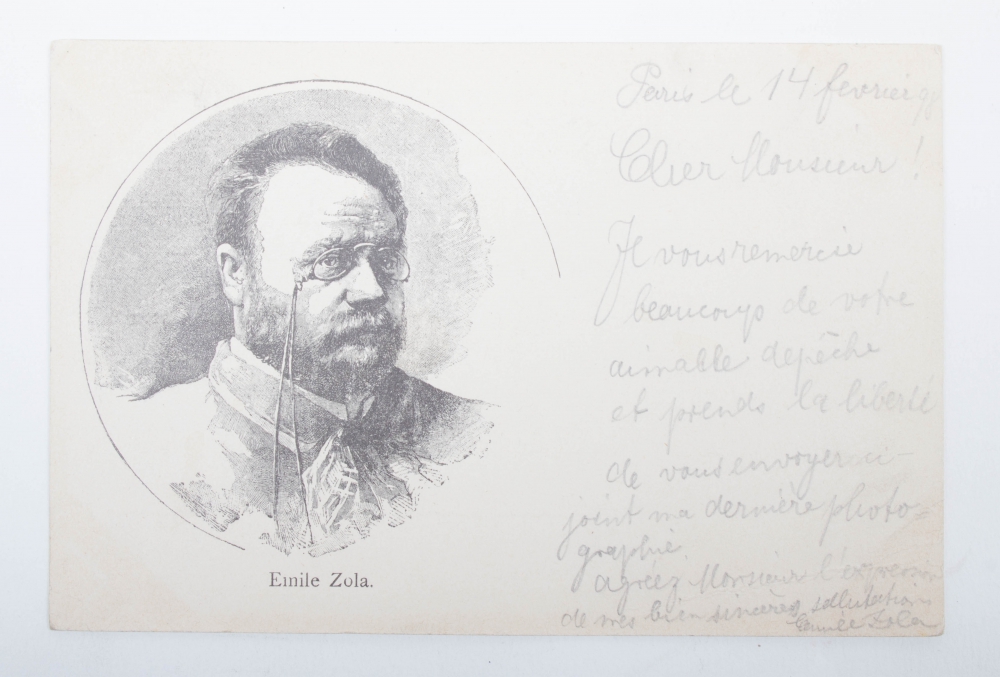 Paris le 14 fevrier 98
Cher Monsieur !
Je vous remercie
beaucoup de votre
aimable depêche
et prends la liberté
de vous envoyer ci-
joint ma dernière photo=
graphie.
agréez Monsieur l'expression
de mes bien sincères sallutations
Emile Zola
Emile Zola.